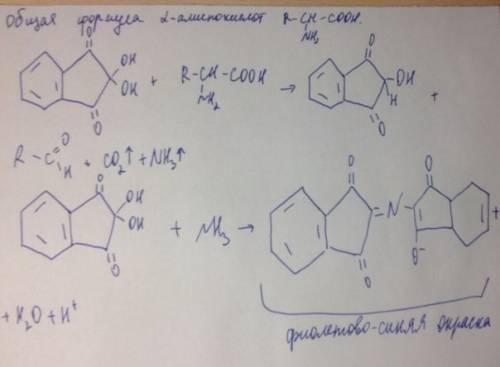 Общая формула α-аминокислот R-CH-COOH.
NH₂
O OH OH O + R-CH-COOH → O OH H O +
NH₂
R-C O H + CO₂↑ + NH₃↑
O OH OH O + NH₃ → O =N- O O O⁻ +
+ H₂O + H⁺
фиолетово-синяя окраска